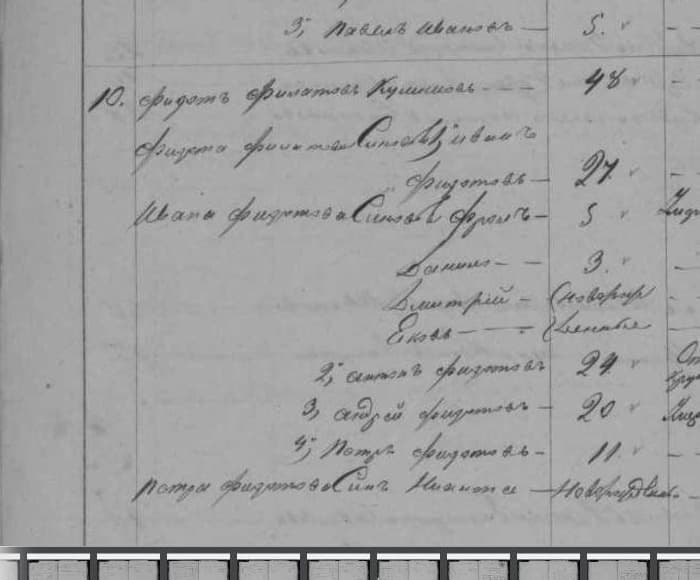 3, Павелъ Ивановъ — 5. —
10. Фидотъ Филатовъ Куликовъ — 48 —
Фидота Филатова Сыновья 1, Иванъ
Фидотовъ — 27. —
Ивана Фидотова Сыновья Фролъ — 5
Данило — 3. —
Дмитрій — (новорож
Яковъ — (денные
2, Антонъ Фидотовъ 24
3, Андрей Фидотовъ — 20
4, Петръ Фидотовъ — 11. —
Петра Фидотова Сынъ — Новорожден —